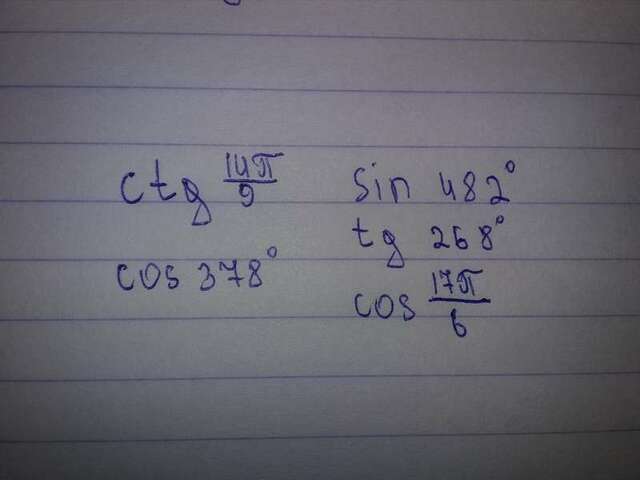 ctg 14π/9 sin 482°
cos 378° tg 268°
cos 17π/6